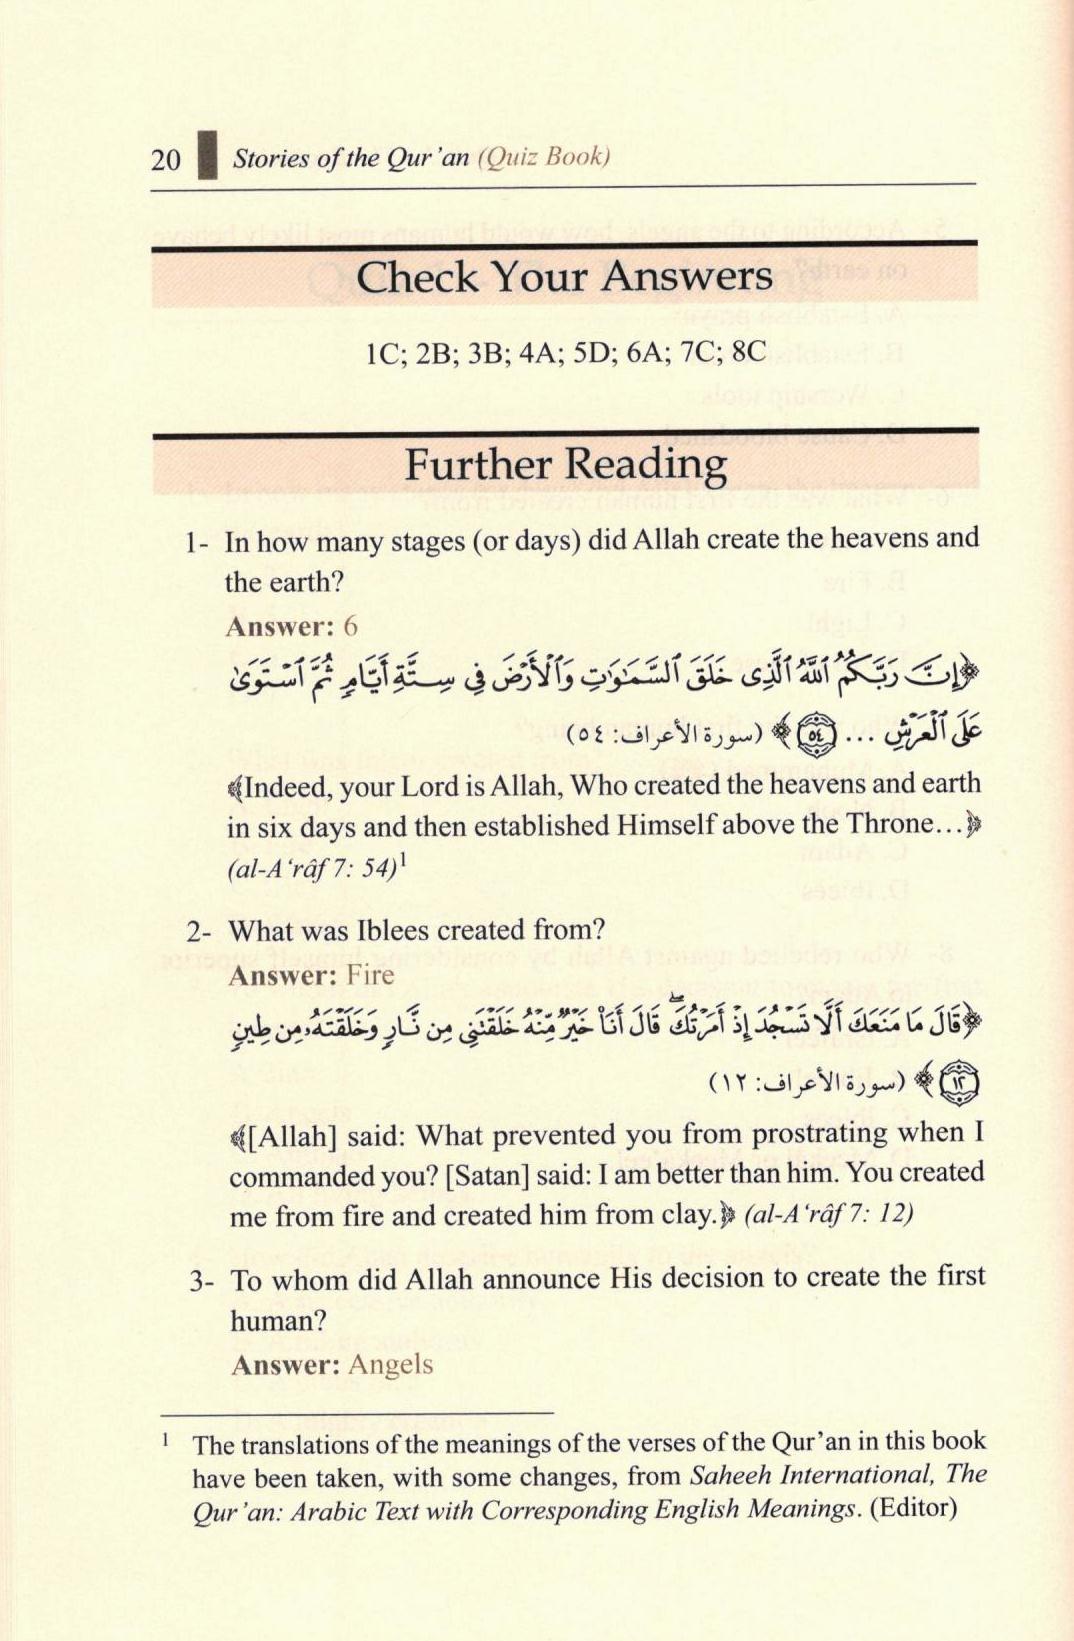 20 Stories of the Qur'an (Quiz Book)
Check Your Answers
1C; 2B; 3B; 4A; 5D; 6A; 7C; 8C
Further Reading
1- In how many stages (or days) did Allah create the heavens and
the earth?
Answer: 6
﴿إِنَّ رَبَّكُمُ ٱللَّهُ ٱلَّذِى خَلَقَ ٱلسَّمَـٰوَٰتِ وَٱلْأَرْضَ فِى سِتَّةِ أَيَّامٍ ثُمَّ ٱسْتَوَىٰ
عَلَى ٱلْعَرْشِ ... ٥٤﴾ (سورة الأعراف: ٥٤)
﴾Indeed, your Lord is Allah, Who created the heavens and earth
in six days and then established Himself above the Throne...﴿
(al-A'râf 7: 54)1
2- What was Iblees created from?
Answer: Fire
﴿قَالَ مَا مَنَعَكَ أَلَّا تَسْجُدَ إِذْ أَمَرْتُكَ ۖ قَالَ أَنَا۠ خَيْرٌ مِّنْهُ خَلَقْتَنِى مِن نَّارٍ وَخَلَقْتَهُۥ مِن طِينٍ
١٢﴾ (سورة الأعراف: ١٢)
﴾[Allah] said: What prevented you from prostrating when I
commanded you? [Satan] said: I am better than him. You created
me from fire and created him from clay.﴿ (al-A'râf 7: 12)
3- To whom did Allah announce His decision to create the first
human?
Answer: Angels
1 The translations of the meanings of the verses of the Qur'an in this book
have been taken, with some changes, from Saheeh International, The
Qur'an: Arabic Text with Corresponding English Meanings. (Editor)